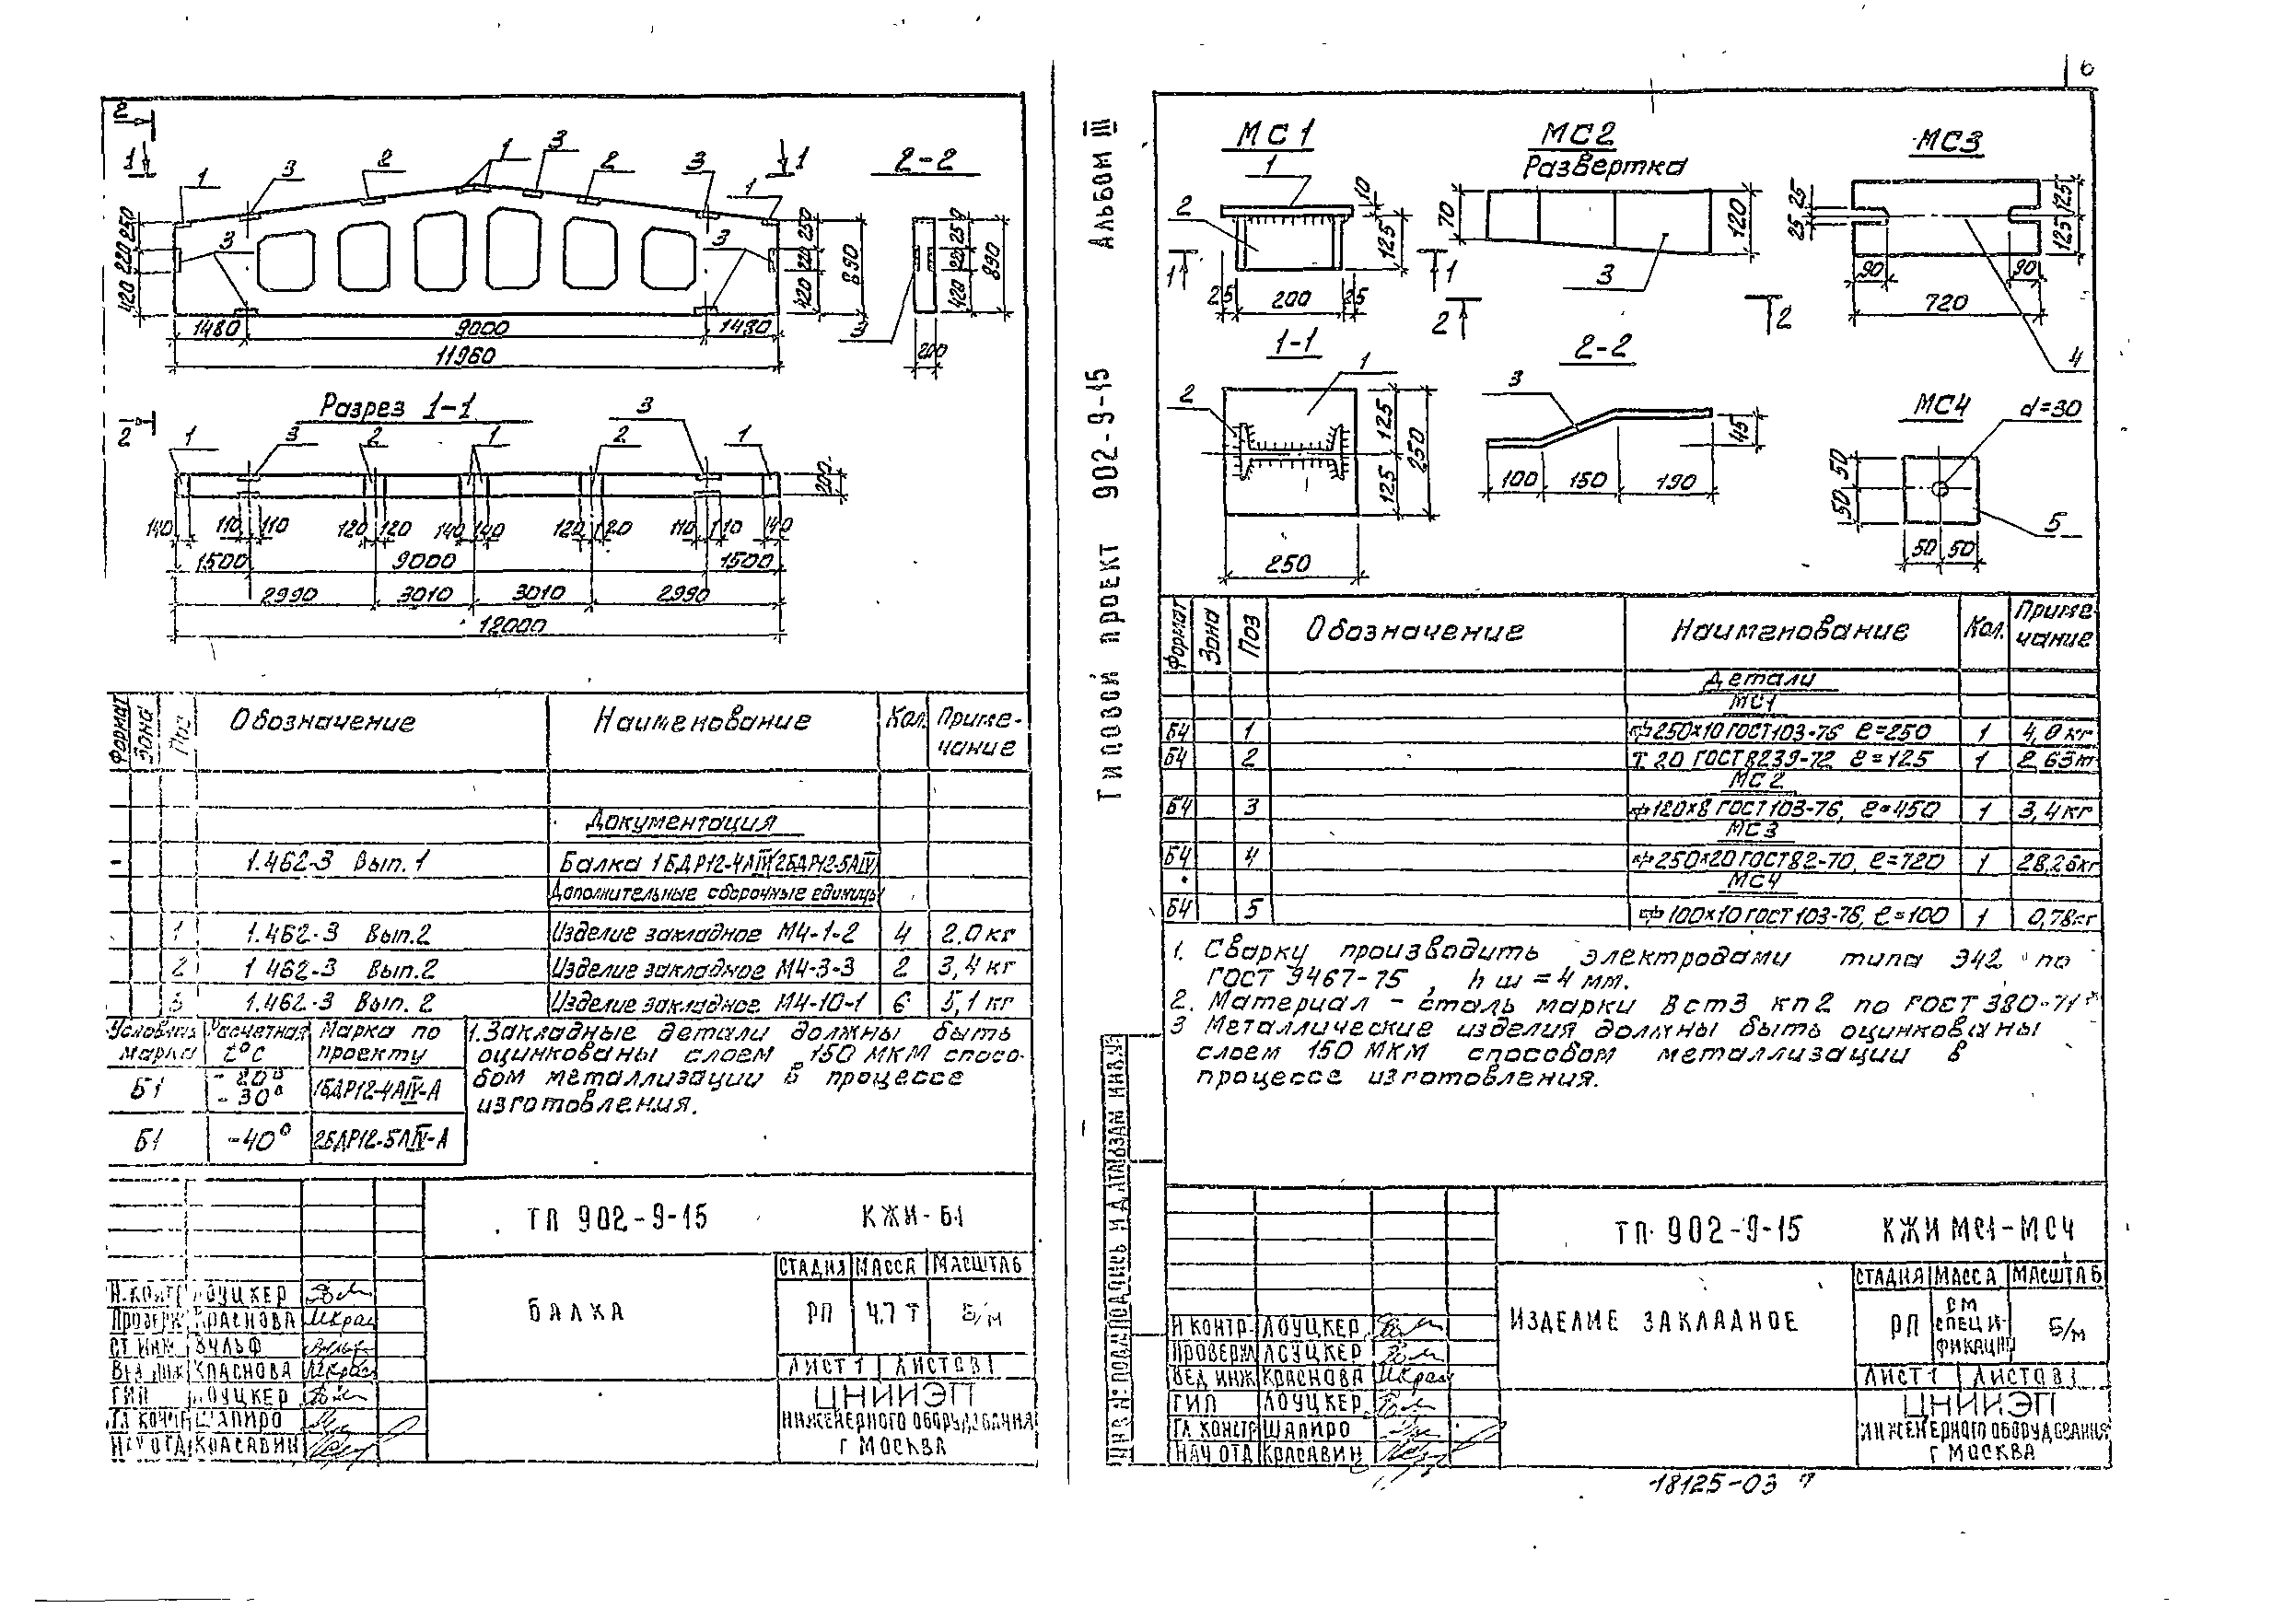 6
2
1
3
2
1
3
2
3
1
1
2-2
250
220
420
3
3
250
220
420
890
250
220
420
890
3
1480
9000
1480
11960
200
Разрез 1-1
3
2
1
3
2
1
2
1
200
140
110
110
120
120
140
140
120
120
110
110
140
1500
9000
1500
2990
3010
3010
2990
12000
Формат
Зона
Поз
Обозначение
Наименование
Кол.
Приме-
чание
Документация
-
1.462-3 Вып. 1
Балка 1БДР12-4АIV(2БДР12-5АIV)
Дополнительные сборочные единицы
1
1.462-3 Вып.2
Изделие закладное М4-1-2
4
2.0 кг
2
1 462-3 Вып.2
Изделие закладное М4-3-3
2
3,4 кг
3
1.462-3 Вып. 2
Изделие закладное М4-10-1
6
5,1 кг
Условная марка
Расчетная t°C
Марка по проекту
Б1
-20°
-30°
1БДР12-4АIV-А
Б1
-40°
2БДР12-5АIV-А
1.Закладные детали должны быть
оцинкованы слоем 150 МКМ спосо-
бом металлизации в процессе
изготовления.
ТП 902-9-15
КЖИ-Б1
БАЛКА
СТАДИЯ
МАССА
МАСШТАБ
РП
4.7 Т
Б/м
ЛИСТ 1
ЛИСТОВ 1
ЦНИИЭП
ИНЖЕНЕРНОГО ОБОРУДОВАНИЯ
г МОСКВА
Н.КОНТР ЛОУЦКЕР
ПРОВЕРИЛ КРАСНОВА
СТ.ИНЖ ВУЛЬФ
ВЕД ИНЖ КРАСНОВА
ГИП ЛОУЦКЕР
ГЛ КОНСТР ШАПИРО
НАЧ ОТД КРАСАВИН
Альбом III
Типовой проект 902-9-15
ИНВ.№ ПОДЛ
ПОДПИСЬ И ДАТА
ВЗАМ ИНВ.№
МС1
1
2
10
125
1
1
25
200
25
1-1
1
2
125
125
250
250
МС2
Развертка
70
120
3
2
2
2-2
3
45
100
150
190
МС3
25
25
125
125
90
90
720
4
МС4
d=30
50
50
50
50
5
Формат
Зона
Поз
Обозначение
Наименование
Кол.
Приме-
чание
Детали
МС1
Б4
1
250×10 ГОСТ103-76 ℓ=250
1
4,9 кг
Б4
2
I 20 ГОСТ8239-72 ℓ=125
1
2 63 кг
МС2
Б4
3
120×8 ГОСТ103-76, ℓ=450
1
3,4 кг
МС3
Б4
4
250×20 ГОСТ82-70, ℓ=720
1
28,26кг
МС4
Б4
5
100×10 ГОСТ103-76, ℓ=100
1
0,78кг
1. Сварку производить электродами типа Э42 по
ГОСТ 9467-75, h ш = 4 мм.
2. Материал - сталь марки ВстЗ кп2 по ГОСТ 380-71*
3 Металлические изделия должны быть оцинкованы
слоем 150 МКМ способом металлизации в
процессе изготовления.
ТП 902-9-15
КЖИ МС1-МС4
ИЗДЕЛИЕ ЗАКЛАДНОЕ
СТАДИЯ
МАССА
МАСШТАБ
РП
СМ
СПЕЦИ-
ФИКАЦИЮ
Б/м
ЛИСТ 1
ЛИСТОВ 1
ЦНИИЭП
ИНЖЕНЕРНОГО ОБОРУДОВАНИЯ
г МОСКВА
Н КОНТР. ЛОУЦКЕР
ПРОВЕРИЛ ЛОУЦКЕР
ВЕД ИНЖ КРАСНОВА
ГИП ЛОУЦКЕР
ГЛ КОНСТР ШАПИРО
НАЧ ОТД КРАСАВИН
18125-03 7